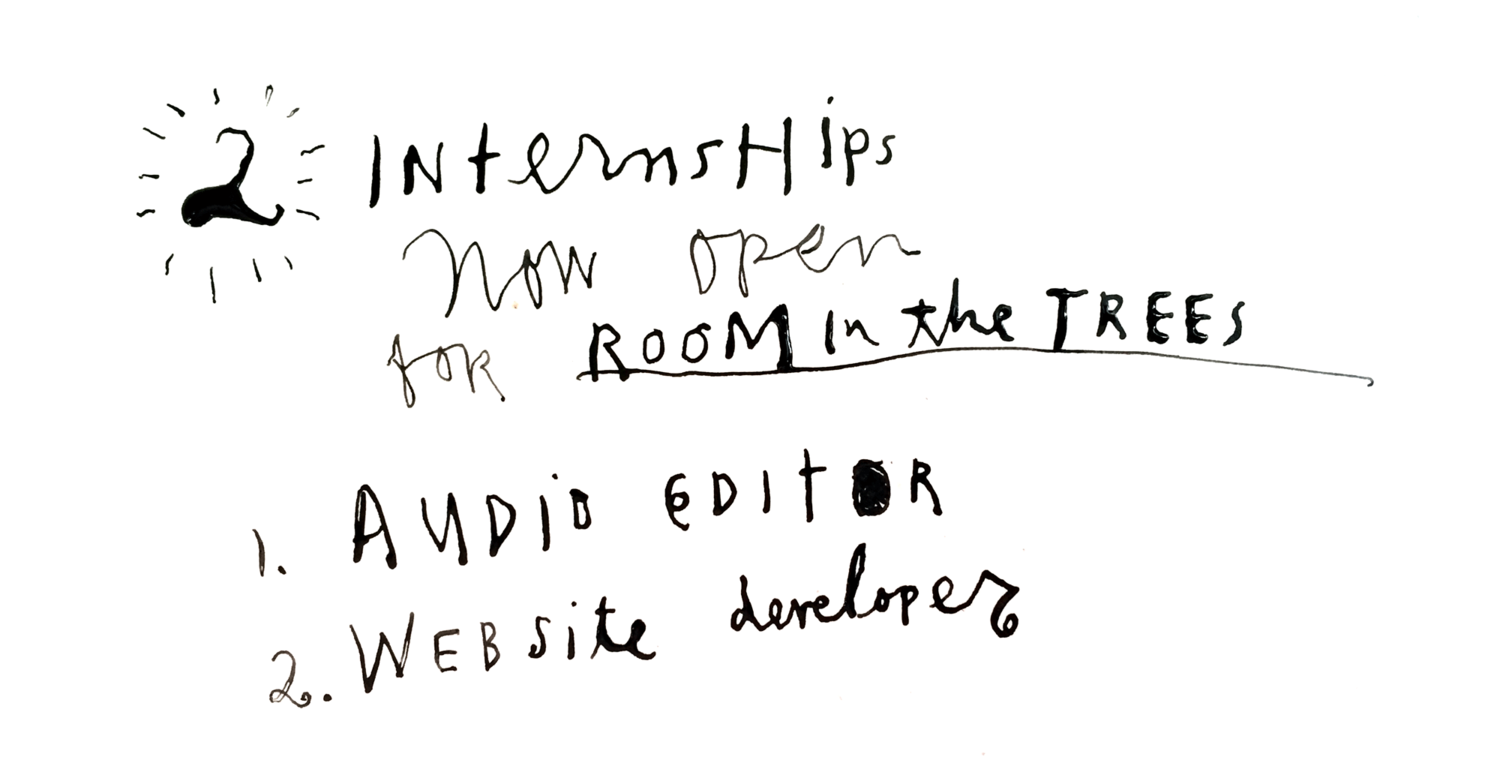 2 INternsHips
Now open
for ROOM in the TREES
1. AUDiO EDItOR
2. WEBsite developer